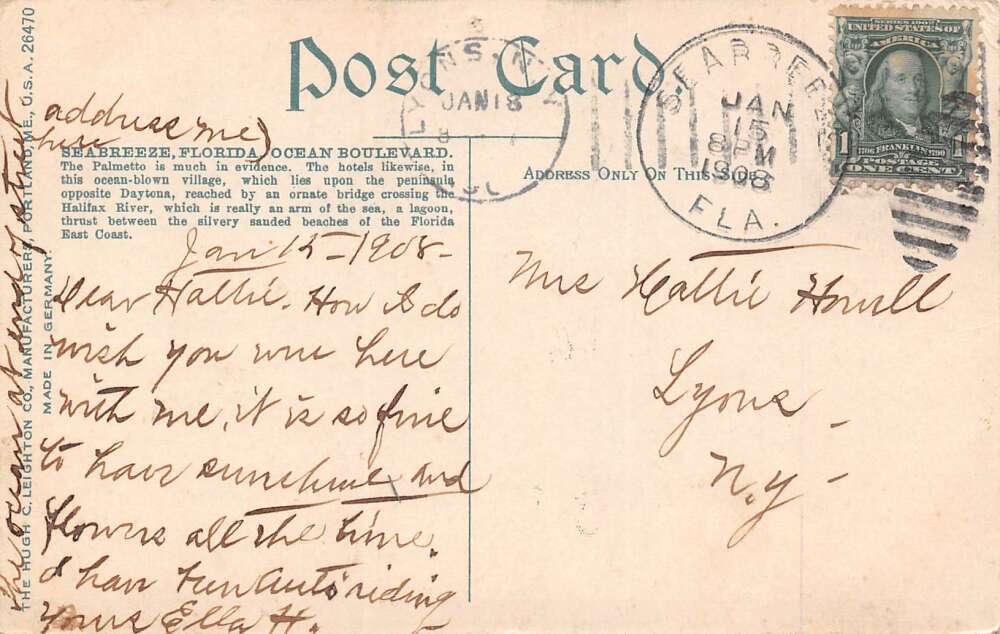 Post Card.
THE HUGH C. LEIGHTON CO., MANUFACTURERS, PORTLAND, ME., U.S.A. 26470
MADE IN GERMANY.
address me
here
SEABREEZE, FLORIDA, OCEAN BOULEVARD.
The Palmetto is much in evidence. The hotels likewise, in
this ocean-blown village, which lies upon the peninsula
opposite Daytona, reached by an ornate bridge crossing the
Halifax River, which is really an arm of the sea, a lagoon,
thrust between the silvery sanded beaches of the Florida
East Coast.
Jan 15-1908-
Dear Hattie. How I do
wish you were here
with me, it is so fine
to have sunshine and
flowers all the time.
I have fun auto riding
Yours Ella H.
the ocean at end of street
LYONS, N.Y.
JAN 18
SEABREEZE
JAN
15
8 PM
1908
FLA.
SERIES 1902
UNITED STATES OF
AMERICA
1706 FRANKLIN 1790
1 POSTAGE 1
ONE CENT
ADDRESS ONLY ON THIS SIDE
Mrs Hattie Howell
Lyons
N.Y-